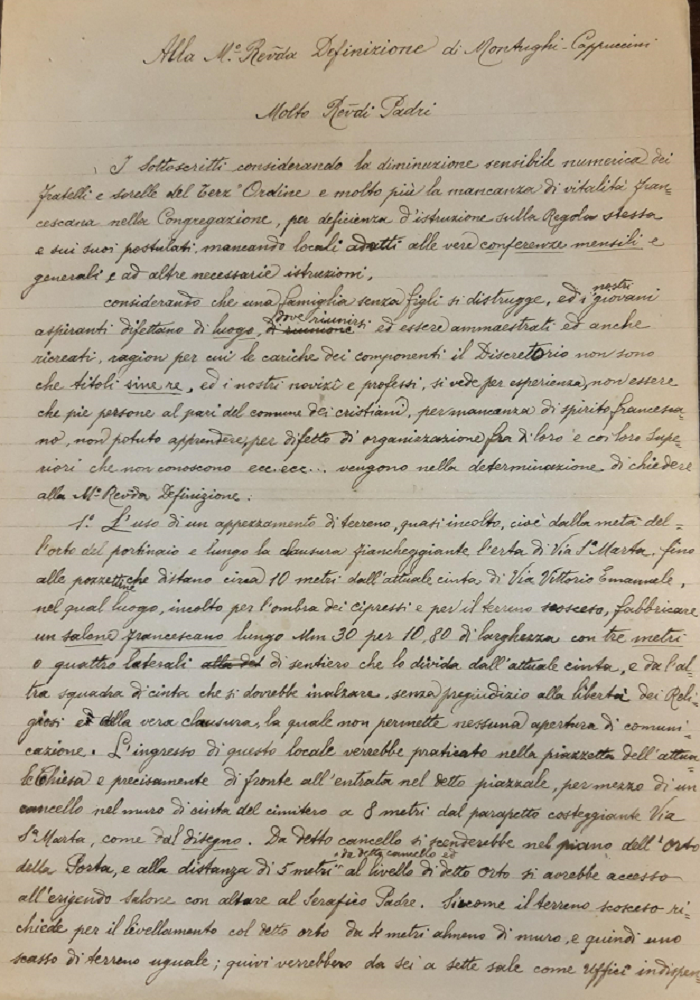 Alla M.º Rev̄da Definizione di Montughi-Cappuccini
Molto Rev̄di Padri
I sottoscritti considerando la diminuzione sensibile numerica dei
fratelli e sorelle del Terz'Ordine e molto più la mancanza di vitalità fran-
cescana nella Congregazione, per deficienza d'istruzione sulla Regola stessa
e sui suoi postulati, mancando locali adatti alle vere conferenze mensili e
generali e ad altre necessarie istruzioni,
considerando che una famiglia senza figli si distrugge, ed i nostri giovani
aspiranti difettano di luogo, di riunione ove riunirsi ed essere ammaestrati ed anche
ricreati, ragion per cui le cariche dei componenti il Discretorio non sono
che titoli sine re, ed i nostri novizi e professi, si vede per esperienza, non essere
che pie persone al pari del comune dei cristiani, per mancanza di spirito francesca-
no, non potuto apprendere, per difetto di organizzazione fra di loro e coi loro Supe-
riori che non conoscono ecc. ecc... vengono nella determinazione di chiedere
alla M.º Rev̄da Definizione:
1.º L'uso di un appezzamento di terreno, quasi incolto, cioè dalla metà del-
l'orto del portinaio e lungo la clausura fiancheggiante l'erta di Via S.ª Marta, fino
alle pozzettine che distano circa 10 metri dall'attuale cinta di Via Vittorio Emanuele,
nel qual luogo, incolto per l'ombra dei cipressi e per il terreno scosceso, fabbricare
un salone francescano lungo Mm 30 per 10,80 di larghezza con tre metri
o quattro laterali di sentiero che lo divida dall'attuale cinta, e da l'al-
tra squadra di cinta che si dovrebbe inalzare, senza pregiudizio alla libertà dei Reli-
giosi ed alla vera clausura, la quale non permette nessuna apertura di comuni-
cazione. L'ingresso di questo locale verrebbe praticato nella piazzetta dell'attua-
le Chiesa e precisamente di fronte all'entrata nel detto piazzale, per mezzo di un
cancello nel muro di cinta del cimitero a 8 metri dal parapetto costeggiante Via
S.ª Marta, come dal disegno. Da detto cancello si scenderebbe nel piano dell'Orto
della Porta, e alla distanza di 5 metri da detto cancello ed al livello di detto orto si avrebbe accesso
all'erigendo salone con altare al Serafico Padre. Siccome il terreno scosceso ri-
chiede per il livellamento col detto orto da 4 metri almeno di muro, e quindi uno
scasso di terreno uguale; quivi verrebbero da sei a sette sale come Uffici indispen-